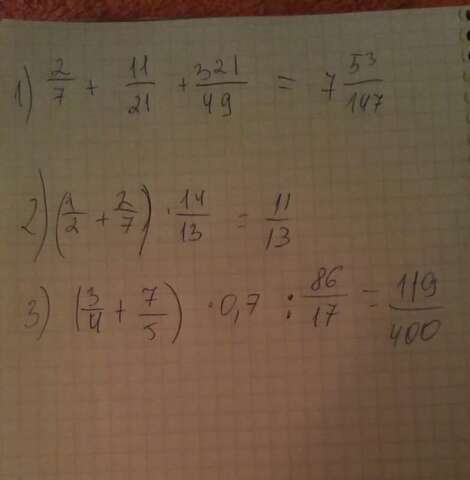 1) 2/7 + 11/21 + 321/49 = 7 53/147
2) (1/2 + 2/7) · 14/13 = 11/13
3) (3/4 + 7/5) · 0,7 : 86/17 = 119/400